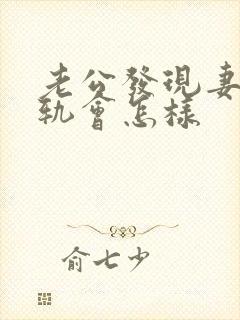 老公發現妻
軌會怎樣
俞七少